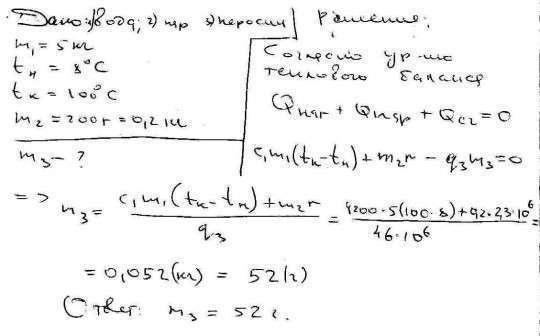 Дано: 1) вода; 2) пар 3) керосин
m₁ = 5 кг
tн = 8°C
tк = 100°C
m₂ = 200г = 0,2 кг
m₃ - ?
Решение:
Согласно ур-ию
теплового баланса
Qнаг + Qпар + Qсг = 0
c₁m₁(tк - tн) + m₂r - q₃m₃ = 0
=> m₃ = (c₁m₁(tк - tн) + m₂r) / q₃ = (4200·5(100·8) + 92·23·10⁶) / (46·10⁶) =
= 0,052 (кг) = 52 (г)
Ответ: m₃ = 52 г.